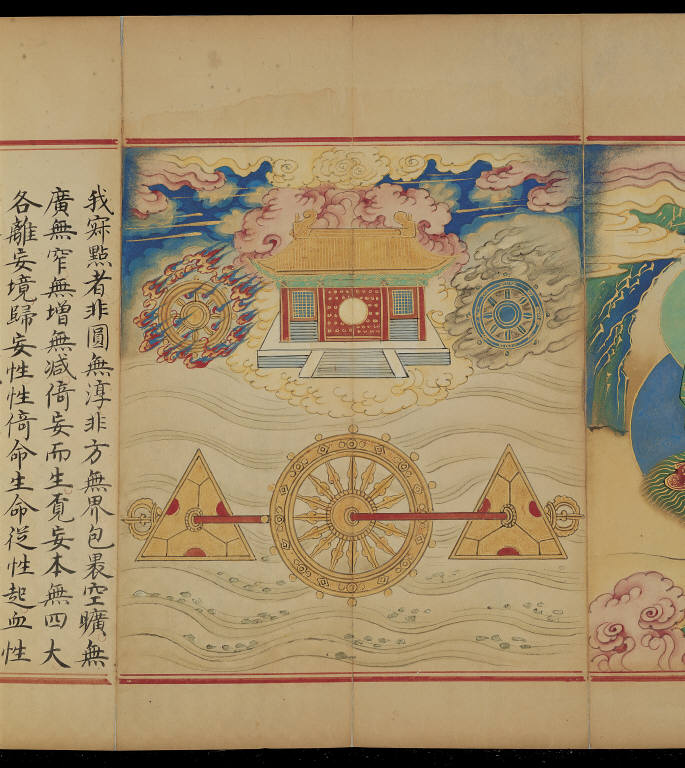 我點者非圓無淳非方無界包空曠無
廣無窄無增無減倚妄而生覔妄本無四大
各離妄境歸妄性性倚命生命從性起血性